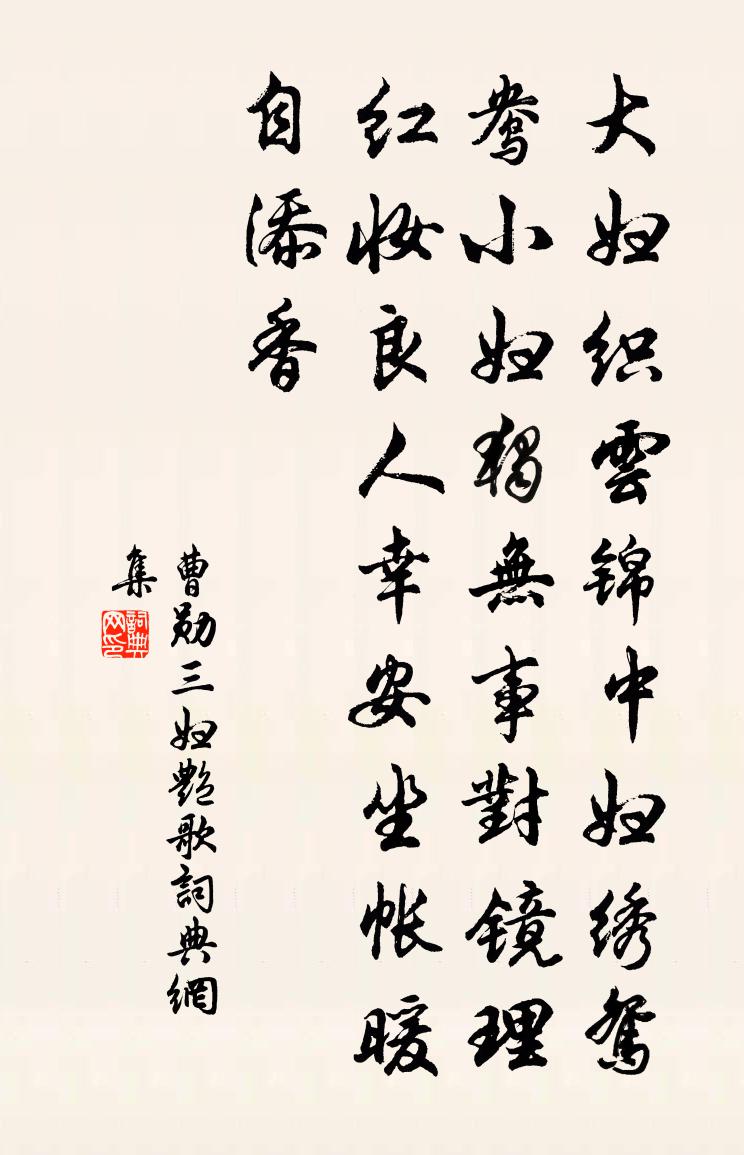 大妇织雲锦中妇绣鸳
鸯小妇独無事對镜理
红妆良人幸安坐帐暖
自添香
曹勋三妇艶歌詞典網
集
詞典网印